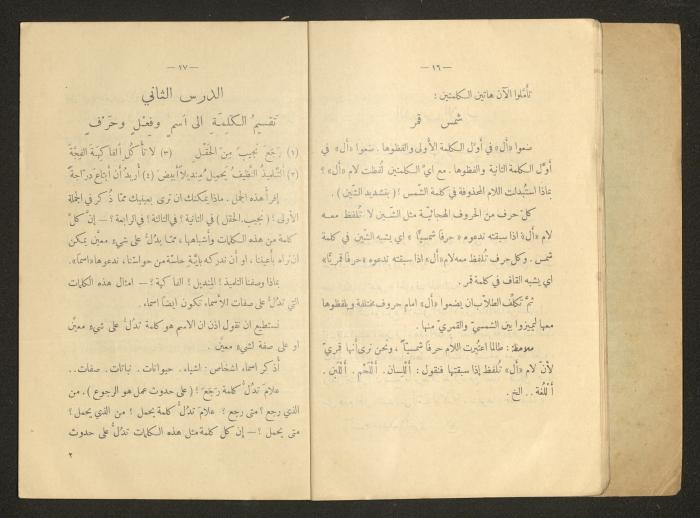 — ١٦ —
تأملوا الآن هاتين الكلمتين :
شمس قمر
ضعوا «أل» في أول الكلمة الأولى والفظوها . ضعوا «أل» في
أول الكلمة الثانية والفظوها . مع أي الكلمتين لُفظت لام «أل» ؟
بماذا استُبدلت اللام المحذوفة في كلمة الشّمس ؟ ( بتشديد الشين ) .
كل حرف من الحروف الهجائية مثل الشين لا تُلفظ معه
لام «أل» اذا سبقته ندعوه « حرفاً شمسياً » اي يشبه الشّين في كلمة
شمس . وكل حرف تُلفظ معه لام «أل» اذا سبقته ندعوه «حرفاً قمرياً»
اي يشبه القاف في كلمة قمر .
ثم تكلّف الطلاب ان يضعوا «أل» امام حروف مختلفة ويلفظوها
معها ليميزوا بين الشمسي والقمري منها .
ملاحظة : طالما اعتُبرت اللام حرفاً شمسياً ، ونحن نرى أنها قمري
لأنّ لام «أل» تُلفظ إذا سبقتها فنقول : أللسان . أللحم . أللبن .
أللُّغة . . الخ .
— ١٧ —
الدرس الثاني
تقسيمُ الكلمةِ الى اسمٍ وفِعْلٍ وحَرْفٍ
(١) رَجَعَ نجيبٌ مِنَ الحَقْلِ (٣) لا تأكُلِ الفاكِهةَ الفِجَّةَ
(٢) التلميذُ النَّظيفُ يَحمِلُ مِنديلاً أبيضَ (٤) أُريدُ أن أبتاعَ درّاجةً
إقرأ هذه الجمل . ماذا يمكنك ان ترى بعينيك ممّا ذُكر في الجملة
الأولى ؟ ( نجيب . الحقل ) في الثانية ؟ في الثالثة ؟ في الرابعة ؟ — إن كلّ
كلمة من هذه الكلمات وأشباهها ، ممّا يدلّ على شيء معيّن يمكن
ان نراه بأعيننا ، او أن ندركه بأيّة حاسّة من حواسّنا ، ندعوها «اسماً».
بماذا وصفنا التلميذ ؟ المنديل ؟ الفاكهة ؟ — امثال هذه الكلمات
التي تدلّ على صفات الأسماء تكون ايضاً اسماء .
نستطيع ان نقول اذن ان الاسم هو كلمة تدلّ على شيء معيّن
او على صفة لشيء معيّن .
أُذكر اسماء اشخاص . اشياء . حيوانات . نباتات . صفات . .
علامَ تدلّ كلمة رَجَعَ ؟ ( على حدوث عمل هو الرجوع ) . من
الذي رجع ؟ متى رجع ؟ علامَ تدلّ كلمة يحمل ؟ من الذي يحمل ؟
متى يحمل ؟ — إن كل كلمة مثل هذه الكلمات تدلّ على حدوث
٢